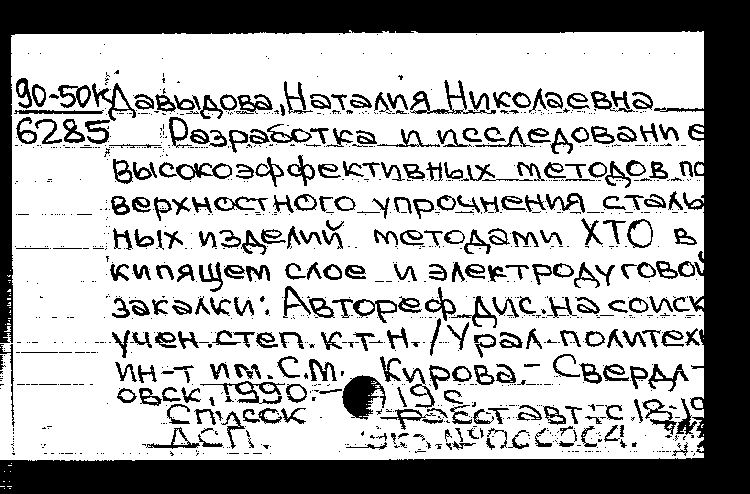 90-50К Давыдова, Наталия Николаевна
6285 Разработка и исследование
высокоэффективных методов по
верхностного упрочнения сталь
ных изделий методами ХТО в
кипящем слое и электродуговой
закалки: Автореф. дис. на соиск
учен. степ. к.т.н. / Урал. политехн
ин-т им. С.М. Кирова. - Свердл-
овск, 1990. - 19 с.
Список работ авт.: с. 18-19
ДСП. Экз. № 000004.